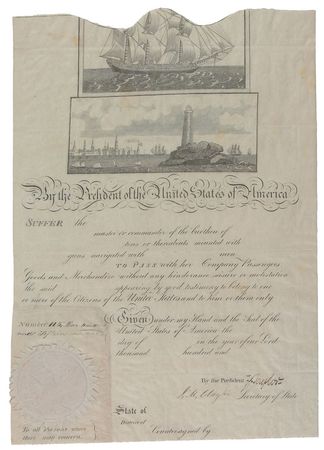 By the President of the United States of America
SUFFER the
master or commander of the burthen of
tons or thereabouts mounted with
guns navigated with men
TO PASS with her Company Passengers
Goods and Merchandize without any hinderance seisure or molestation
the said appearing by good testimony to belong to one
or more of the Citizens of the United States and to him or them only
Given under my Hand and the Seal of the
United States of America the
day of in the year of our Lord
thousand hundred and
Number
By the President
Secretary of State
State of
District of
Countersigned by
To all Persons whom
these may concern